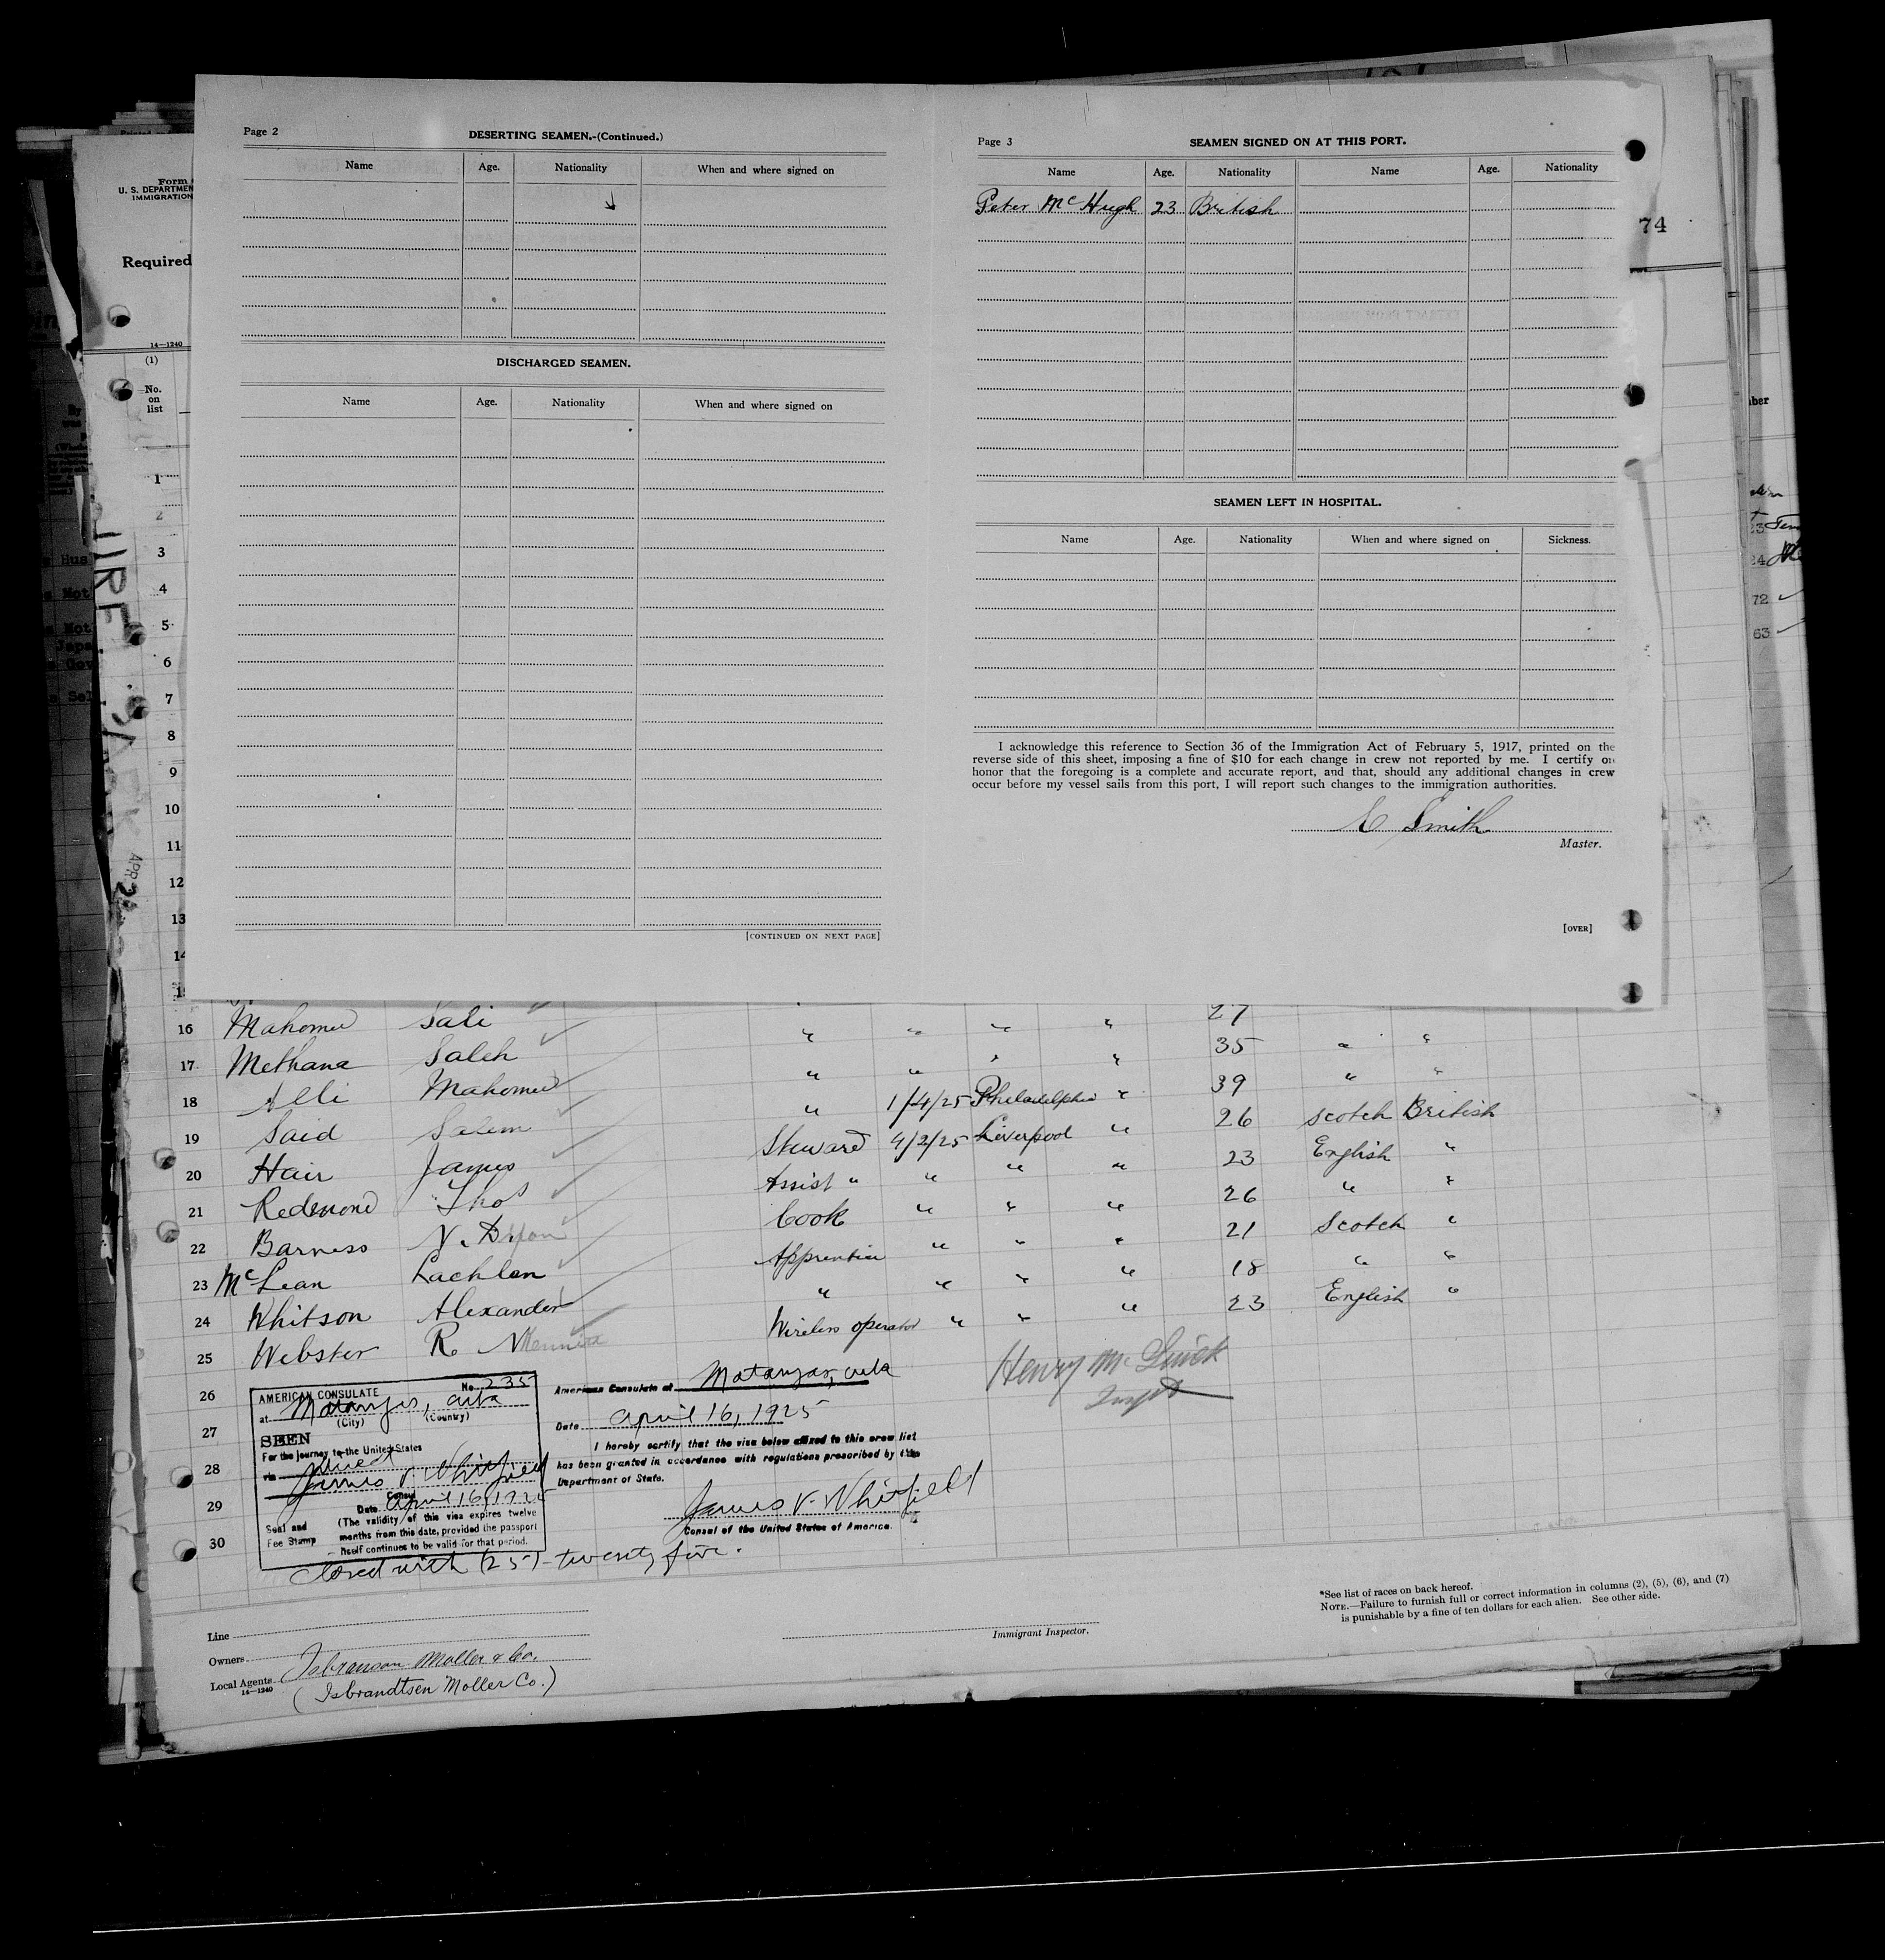 Page 2
DESERTING SEAMEN.-(Continued.)
Name Age. Nationality When and where signed on
DISCHARGED SEAMEN.
Name Age. Nationality When and where signed on
[CONTINUED ON NEXT PAGE]
Page 3
SEAMEN SIGNED ON AT THIS PORT.
Name Age. Nationality Name Age. Nationality
Peter McHugh 23 British
SEAMEN LEFT IN HOSPITAL.
Name Age. Nationality When and where signed on Sickness.
I acknowledge this reference to Section 36 of the Immigration Act of February 5, 1917, printed on the
reverse side of this sheet, imposing a fine of $10 for each change in crew not reported by me. I certify on
honor that the foregoing is a complete and accurate report, and that, should any additional changes in crew
occur before my vessel sails from this port, I will report such changes to the immigration authorities.
Smith
Master.
[OVER]
74
Form
U. S. DEPARTMEN
IMMIGRATION
Required
14—1240
(1)
No.
on
list
1
2
3
4
5
6
7
8
9
10
11
12
13
14
16 Mahomed Sali " " " " 27
17 Methana Saleh " " " " 35 " "
18 Alli Mahomed " " " " 39 " "
19 Said Salem " 1/4/25 Philadelphia " 26 Scotch British
20 Hair James Steward 4/2/25 Liverpool " 23 English "
21 Redmond Thos Assist " " " " 26 " "
22 Barness Cook " " " 21 Scotch "
23 McLean Lachlan Apprentice " " " 18 " "
24 Whitson Alexander " " " " 23 English "
25 Webster R. Wireless operator " " "
26
27
28
29
30
AMERICAN CONSULATE No. 235
at Matanzas, Cuba
(City) (Country)
SEEN
For the journey to the United States
via direct
James V. Whitfield
Consul
Date April 16, 1925
(The validity of this visa expires twelve
months from this date, provided the passport
itself continues to be valid for that period.
Seal and
Fee Stamp
American Consulate at Matanzas, Cuba
Date April 16, 1925
I hereby certify that the visa below affixed to this crew list
has been granted in accordance with regulations prescribed by the
Department of State.
James V. Whitfield
Consul of the United States of America.
Henry
closed with (25) - twenty five.
Line
Owners
Local Agents Isbranson Moller & Co.
14—1240
(Isbrandtsen Moller Co.)
Immigrant Inspector.
*See list of races on back hereof.
NOTE.—Failure to furnish full or correct information in columns (2), (5), (6), and (7)
is punishable by a fine of ten dollars for each alien. See other side.